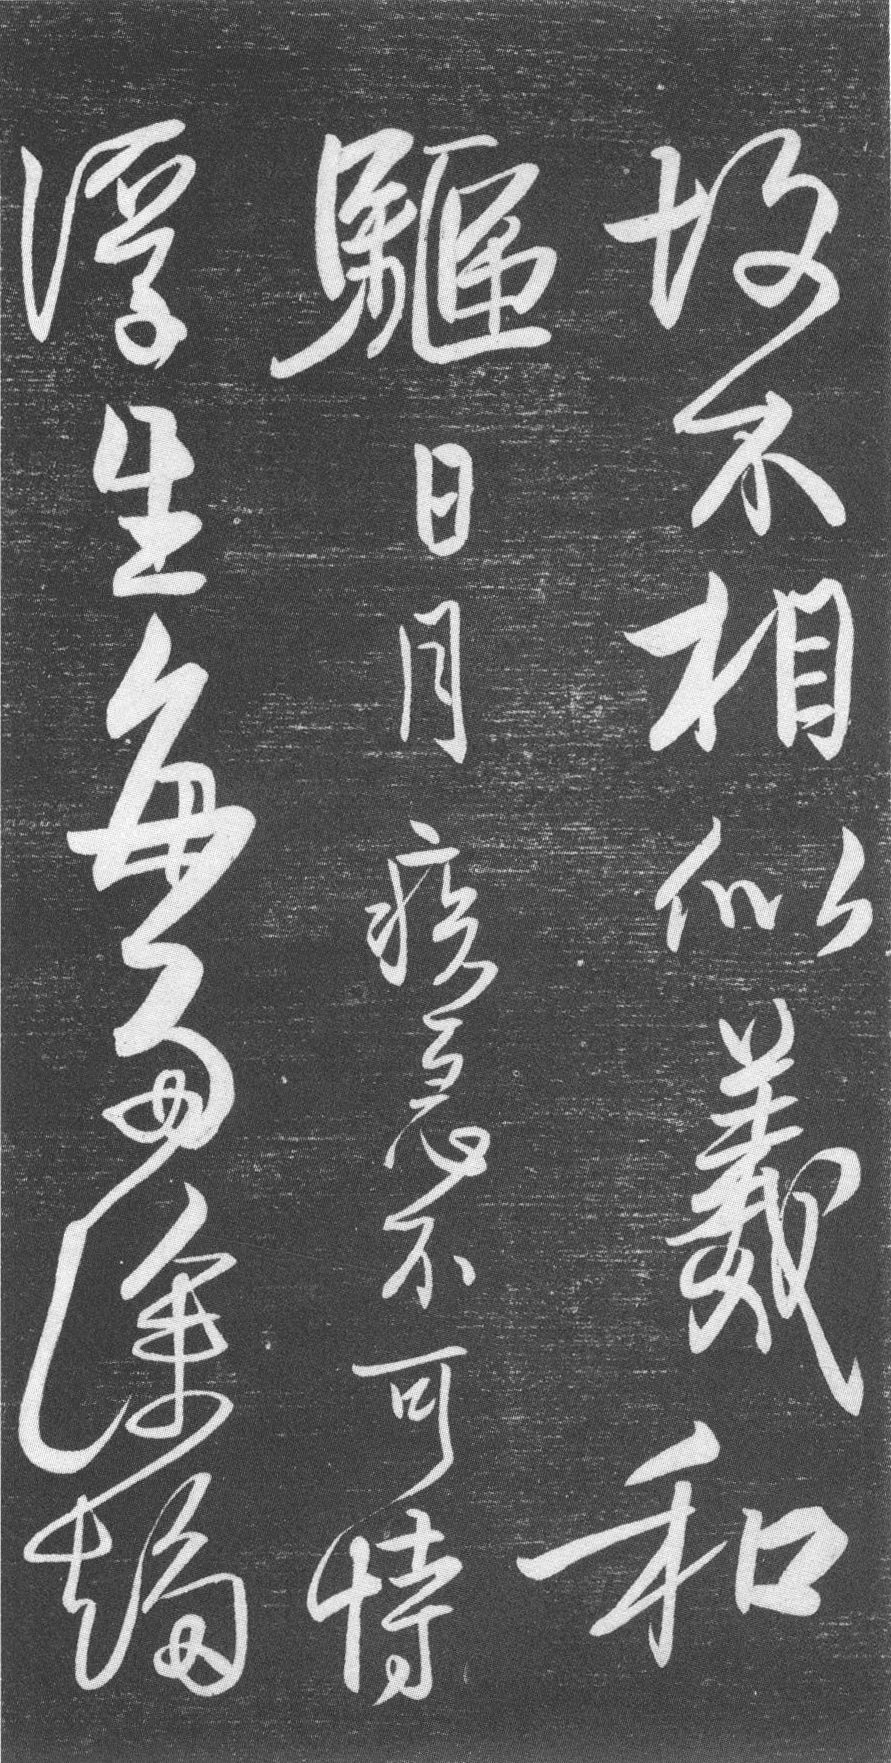 故不相似羲和
驅日月疾急不可恃
浮生無多塗趨